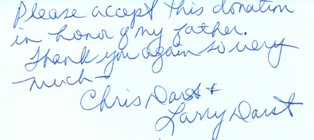 Please accept this donation
in honor of my father.
Thank you again so very
much
Chris Darst +
Larry Darst